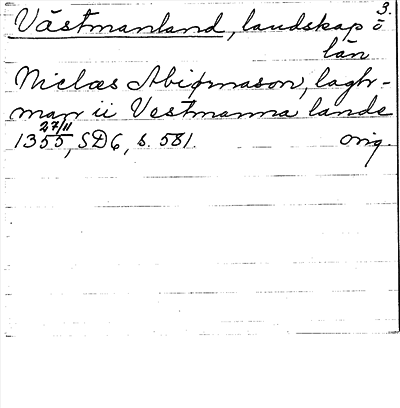 3.
Västmanland, landskap o
län
Niclæs Abiornason, laghr-
man ii Vestmanna lande
27/11
1355, SD6, s. 581. orig.